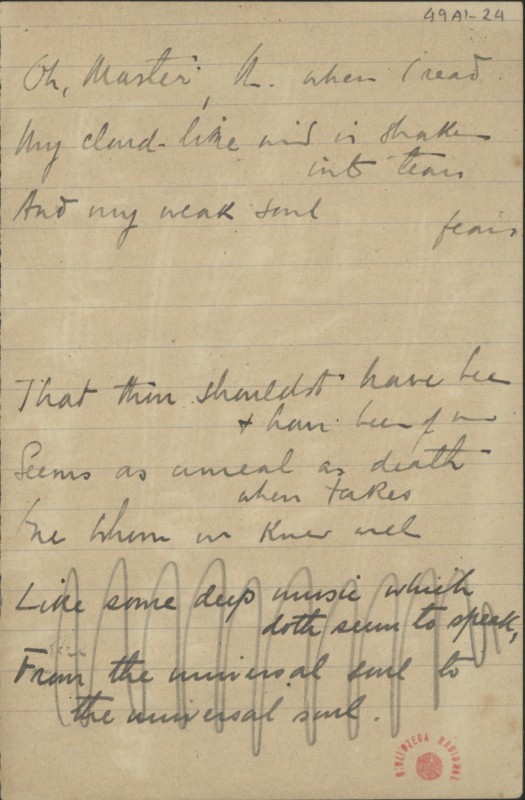 49A1-24
Oh, Master, when I read
My cloud-like mind is shaken
into tears
And my weak soul
fears
That thou shouldst have been
& have been of
Seems as unreal as death
when takes
One whom we knew well
Like some deep music which
doth seem to speak,
From the universal soul to
the universal soul.
BIBLIOTECA NACIONAL